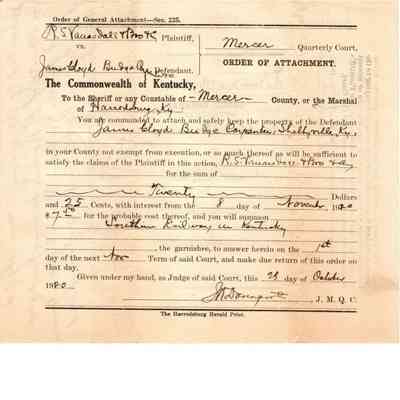 Order of General Attachment—Sec. 225.
R.S. Vanarsdall & Bro &c Plaintiff,
vs.
Mercer Quarterly Court.
James Lloyd Defendant.
ORDER OF ATTACHMENT.
The Commonwealth of Kentucky,
To the Sheriff or any Constable of Mercer County, or the Marshal
of Harrodsburg, Ky
You are commanded to attach and safely keep the property of the Defendant
James Lloyd Bridge Carpenter, Shelbyville, Ky.,
in your County not exempt from execution, or so much thereof as will be sufficient to
satisfy the claims of the Plaintiff in this action, R.S. Vanarsdall & Bro
for the sum of
Twenty Dollars
and 25 Cents, with interest from the 8 day of November
$7.50 for the probable cost thereof, and you will summon
Southern Railway in Kentucky
, the garnishee, to answer herein on the 1st
day of the next Nov Term of said Court, and make due return of this order on
that day.
Given under my hand, as Judge of said Court, this day of October
J. M. Q. C.
The Harrodsburg Herald Print.